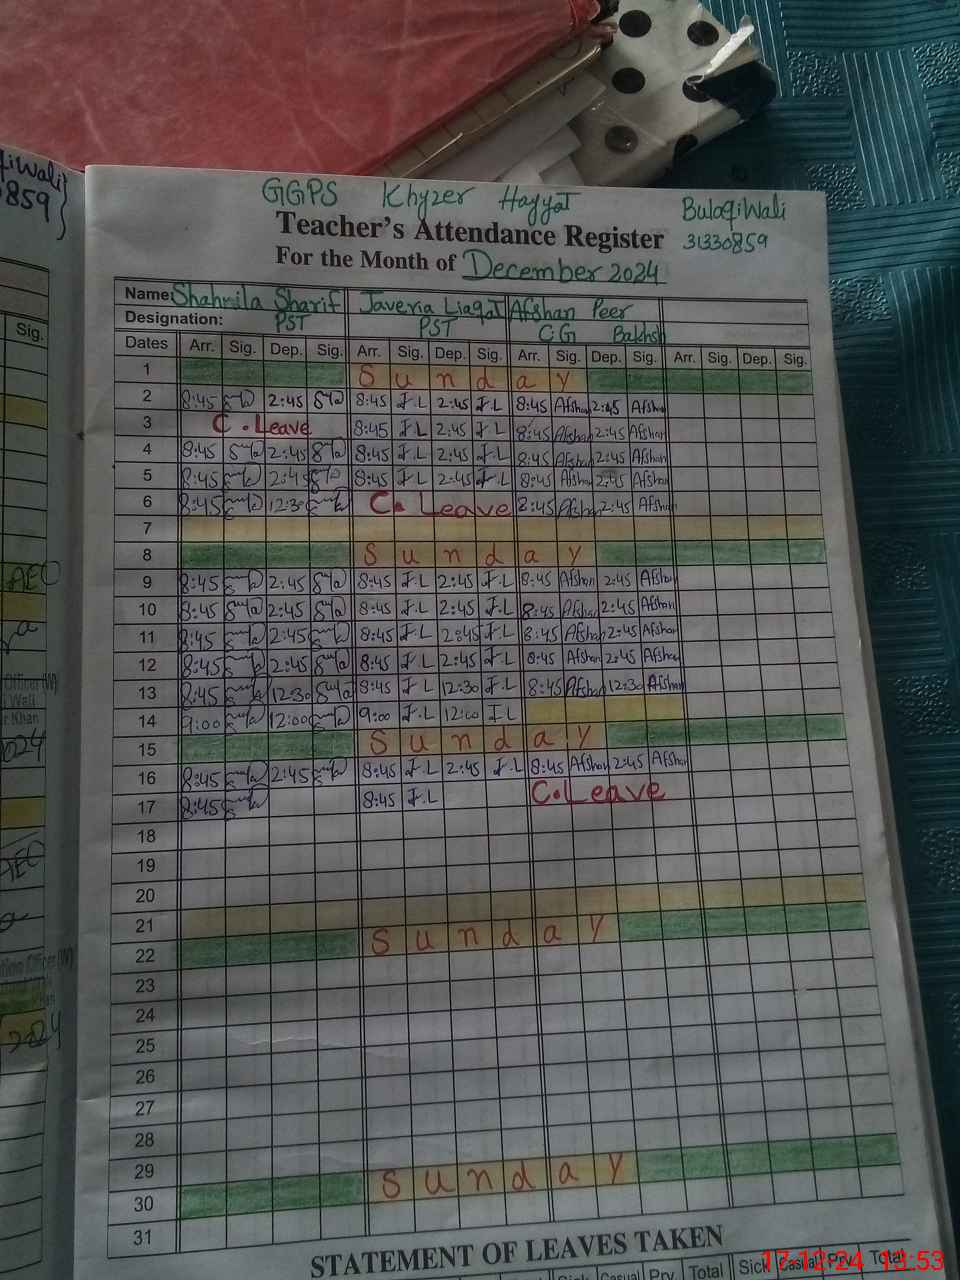 GGPS Khyzer Hayyat BuloqiWali
Teacher's Attendance Register 31330859
For the Month of December 2024
Name: Shahnila Sharif Javeria Liaqat Afshan Peer
Designation: PST PST CG Bakhsh
Dates Arr. Sig. Dep. Sig. Arr. Sig. Dep. Sig. Arr. Sig. Dep. Sig. Arr. Sig. Dep. Sig.
1 Sunday
2 8:45 2:45 8:45 J.L 2:45 J.L 8:45 Afshan 2:45 Afshan
3 C.Leave 8:45 J.L 2:45 J.L 8:45 Afshan 2:45 Afshan
4 8:45 2:45 8:45 J.L 2:45 J.L 8:45 Afshan 2:45 Afshan
5 8:45 2:45 8:45 J.L 2:45 J.L 8:45 Afshan 2:45 Afshan
6 8:45 12:30 C.Leave 8:45 Afshan 2:45 Afshan
7
8 Sunday
9 8:45 2:45 8:45 J.L 2:45 J.L 8:45 Afshan 2:45 Afshan
10 8:45 2:45 8:45 J.L 2:45 J.L 8:45 Afshan 2:45 Afshan
11 8:45 2:45 8:45 J.L 2:45 J.L 8:45 Afshan 2:45 Afshan
12 8:45 2:45 8:45 J.L 2:45 J.L 8:45 Afshan 2:45 Afshan
13 8:45 12:30 8:45 J.L 12:30 J.L 8:45 Afshan 12:30 Afshan
14 9:00 12:00 9:00 J.L 12:00 J.L
15 Sunday
16 8:45 2:45 8:45 J.L 2:45 J.L 8:45 Afshan 2:45 Afshan
17 8:45 8:45 J.L C.Leave
18
19
20
21
22 Sunday
23
24
25
26
27
28
29 Sunday
30
31
STATEMENT OF LEAVES TAKEN
Casual Prv. Total Sick Casual Prv. Total
17-12-24 13:53
Sig.
859
AEO
2024